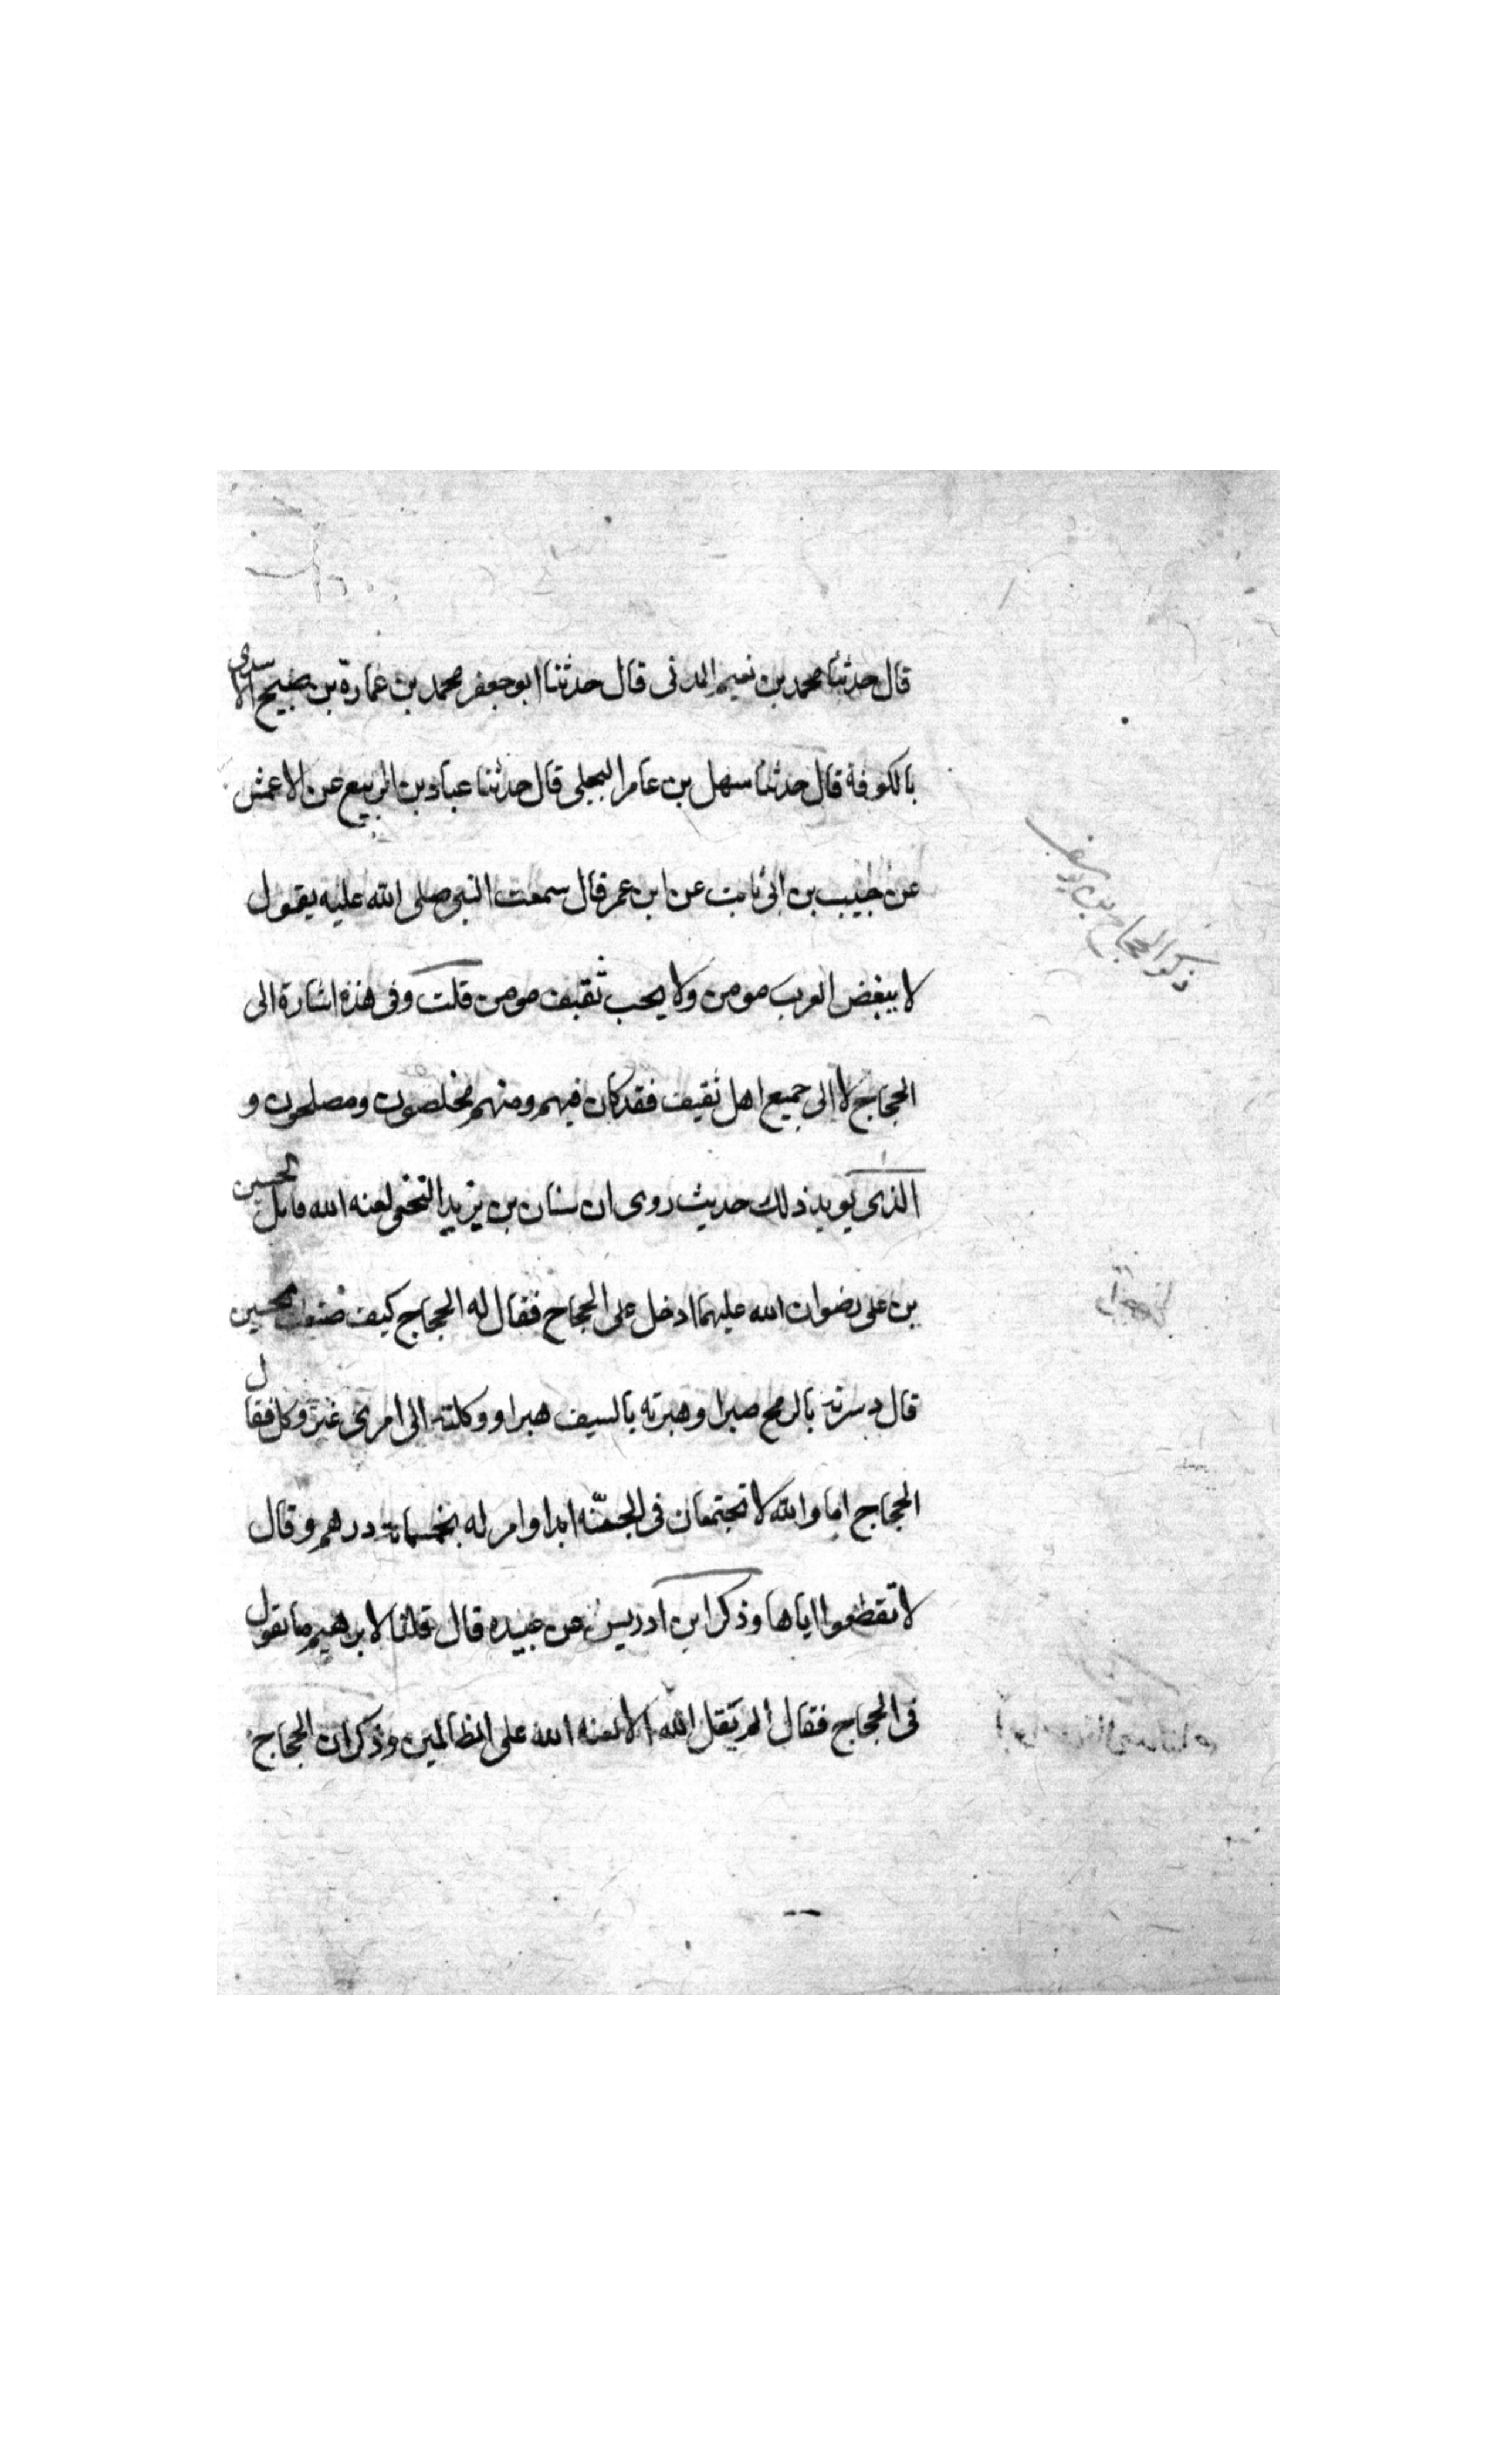 قال حدثنا محمد بن نعيم المدنى قال حدثنا ابو جعفر محمد بن عمارة بن صبيح الاسدى
بالكوفة قال حدثنا سهل بن عامر البجلى قال حدثنا عباد بن الربيع عن الاعمش
عن حبيب بن ابى ثابت عن ابن عمر قال سمعت النبى صلى الله عليه يقول
لا يبغض العرب مومن ولا يحب ثقيف مومن قلت وفى هذه اشارة الى
الحجاج لا الى جميع اهل ثقيف فقد كان فيهم ومنهم مخلصون ومصلحون و
الذى يويد ذلك حديث روى ان سنان بن يزيد النخعى لعنه الله قاتل الحسين
بن على رضوان الله عليهما ادخل على الحجاج فقال له الحجاج كيف صنعت بالحسين
قال دسرته بالرمح صبرا وهبرته بالسيف هبرا ووكلته الى امرئ غير وكل فقال
الحجاج اما والله لا تجتمعان فى الجنة ابدا وامر له بخمسمائة درهم وقال
لا تقطعوا اياها وذكر ابن ادريس عن عبيده قال قلنا لابرهيم ما تقول
فى الحجاج فقال الم يقل الله الا لعنه الله على الظالمين وذكر ان الحجاج
ذكر الحجاج بن يوسف